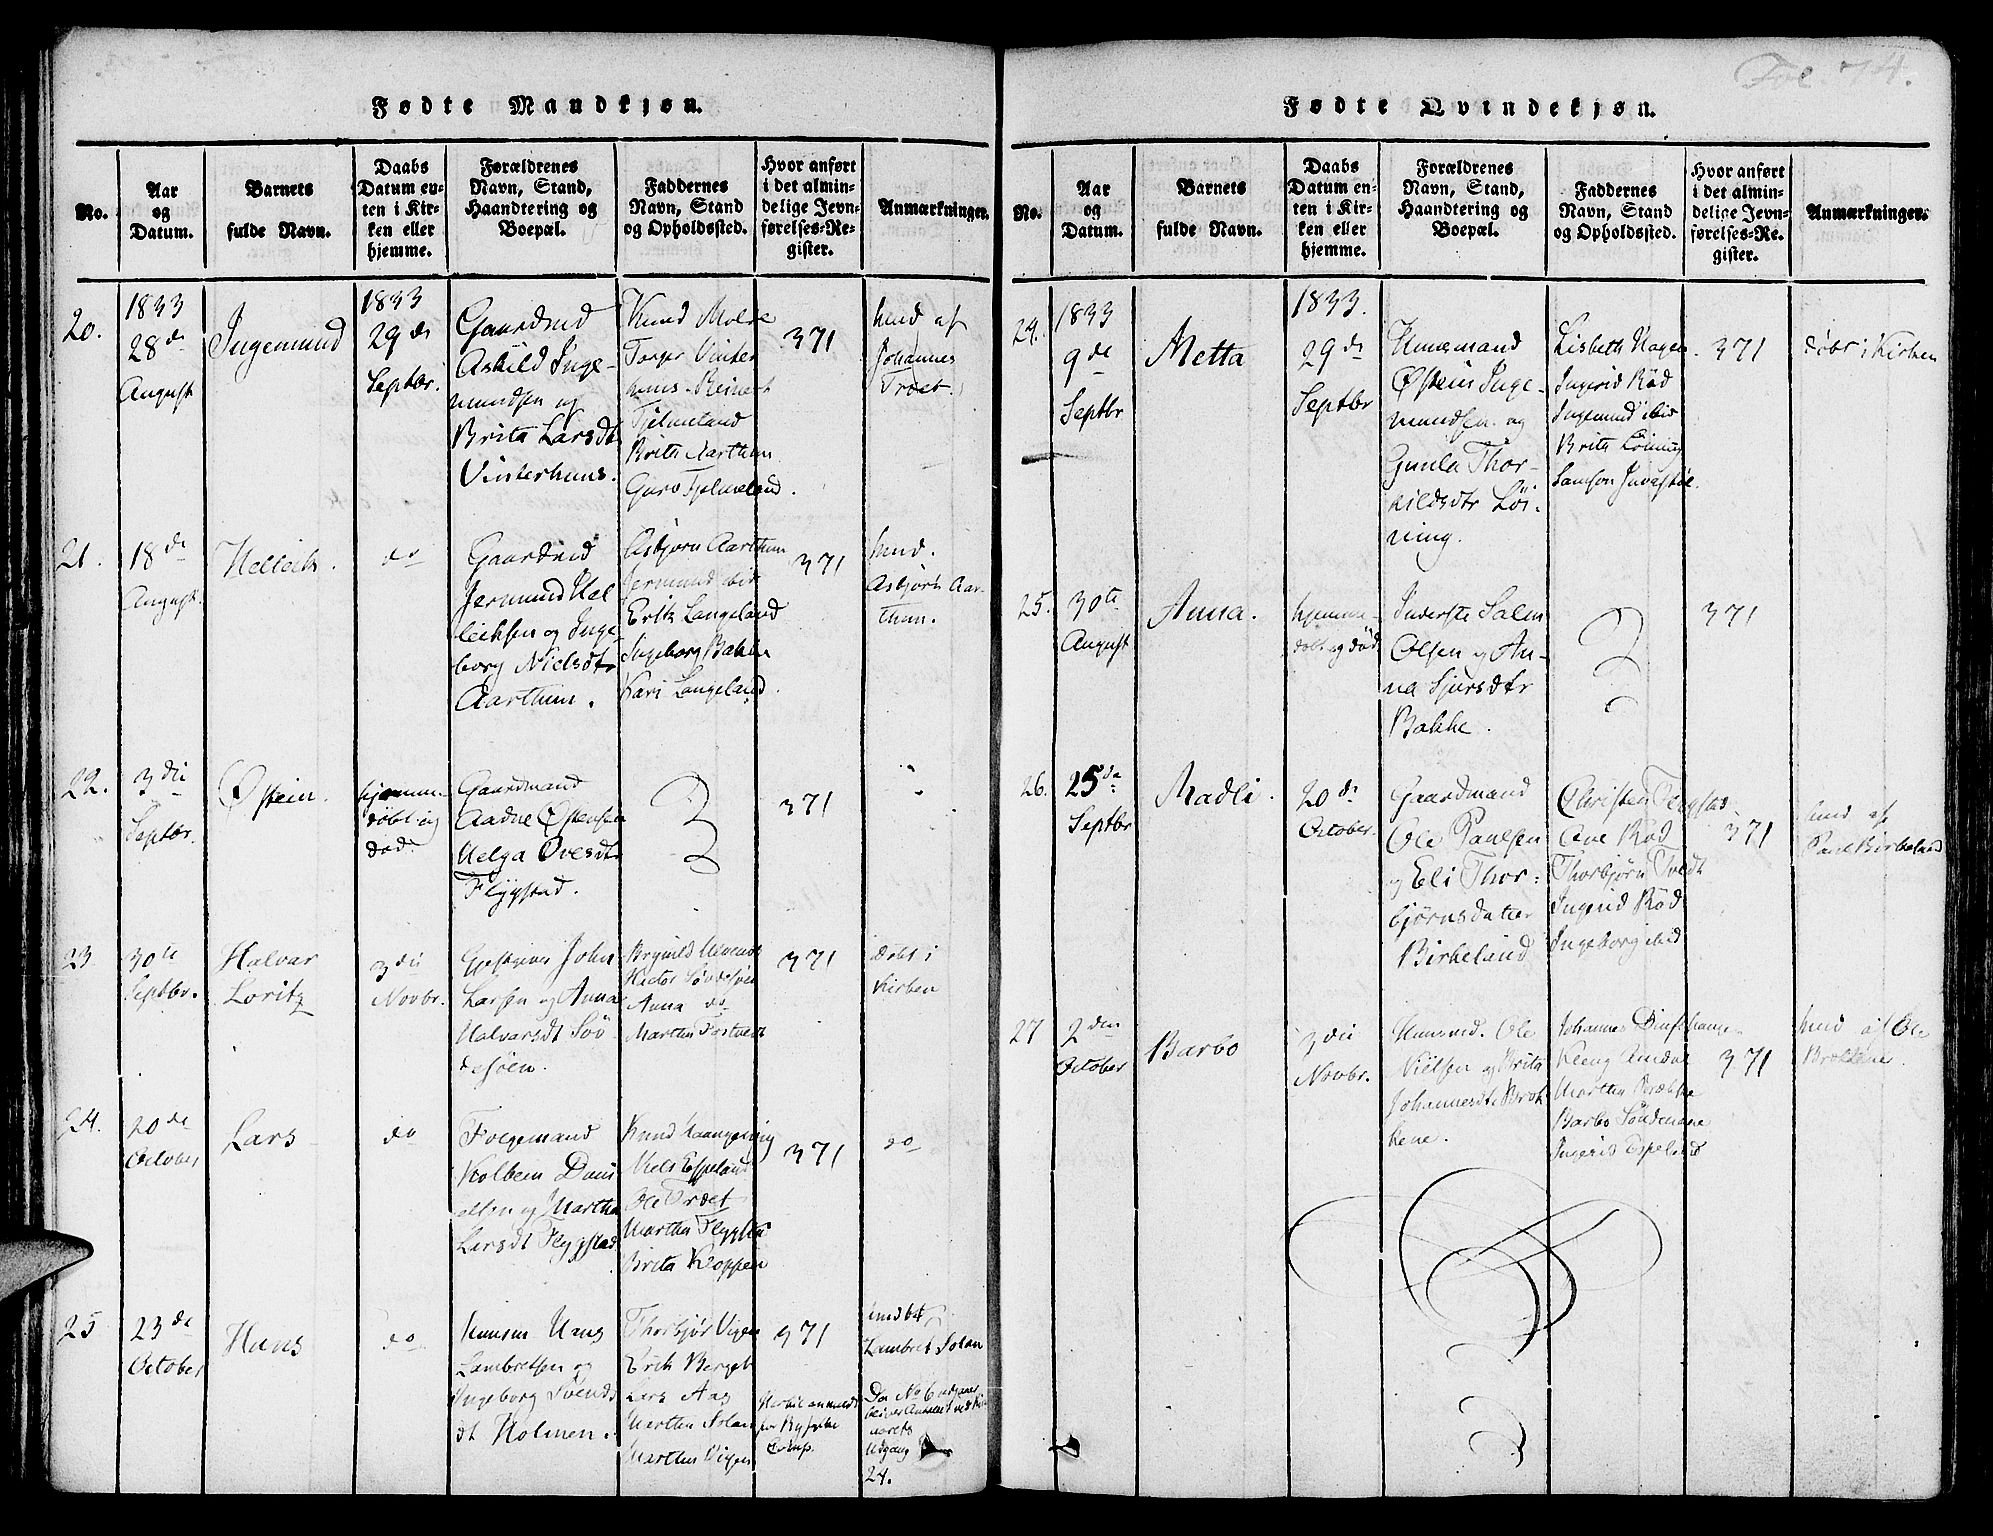 Fødte Mandkjøn.
No.
Aar
og
Datum.
Barnets
fulde Navn.
Daabs
Datum en-
ten i Kir-
ken eller
hjemme.
Forældrenes
Navn, Stand,
Haandtering og
Boepæl.
Faddernes
Navn, Stand
og Opholdssted.
Hvor anført
i det almin-
delige Jevn-
førelses-Re-
gister.
Anmærkninger.
20.
1833
28de
August
Ingemund
1833
29de
Septbr.
Gaardmd
Askild Inge-
mundsen og
Brita Larsdtr
Vinterhuus.
Knud
Torger Vinter
huus Reinert
Tjelmeland
Brita Aarthun
Guro Tjelmeland.
371
hmd af
Johannes
Træet.
21.
18de
August.
Helleik.
do
Gaardmd
Jermund Hal
leiksen og Inge-
borg Nielsdtr
Aarthun.
Asbjørn Aarthun
Jermund ibid
Erik Langeland
Ingeborg Bakke
Kari Langeland.
371
hmd.
Asbjørn Aar-
thun.
22.
3die
Septbr.
Østein.
hjemme-
døbt og
død.
Gaardmand
Aadne Østensen
Helga Ovesdtr
Flygstad.
371
23.
30te
Septbr.
Halvar
Loritz
3die
Novbr.
John
Larsen og Anna
Halvarsdt Søv
desøen.
Brynild
Anna do
Martha
371
døbt i
Kirken
24.
20de
October
Lars
do
Folgemand
Kolbein Dani
elsen og Martha
Larsdt Flygstad
Knud
Niels Espeland
Ole Træet
Martha Flygsta
Brita Kloppen
371
do
25
23de
October
Hans
do
Huusm Hans
Lambretsen og
Ingeborg Svends
dt Holmen.
Thorbjør Vigen
Erik Berget
Lars Aas
Martha Solan
Martha Vigen
371
Hertil anmeldt
for Ryfylke
Comp.
hmd af
Lambret Solan
Da No 6 udgaaer
bliver Antallet ved
aarets
Udgang
24.
Fol 74.
Fødte Qvindekjøn.
No.
Aar
og
Datum.
Barnets
fulde Navn.
Daabs
Datum en-
ten i Kir-
ken eller
hjemme.
Forældrenes
Navn, Stand,
Haandtering og
Boepæl.
Faddernes
Navn, Stand
og Opholdssted.
Hvor anført
i det almin-
delige Jevn-
førelses-Re-
gister.
Anmærkninger.
24.
1833
9de
Septbr
Metta
1833.
29de
Septbr
Huusmand
Østein Inge-
mundsen og
Gunla Thor-
kildsdtr Løi-
ning.
Lisbeth Hagen
Ingerid Rød
Ingemund ibid
Brita Løining
Samson
371
døbt i Kirken
25.
30te
August
Anna.
hjemme-
døbt og død
Inderste Salm
Olsen og An-
na Sjursdtr
Bakke.
371
26.
25de
Septbr
Madli.
20de
October.
Gaardmand
Ole Paulsen
og Eli Thor-
bjørnsdatter
Birkeland
Christen Flygstad
Ane Rød
Thorbjørn Tvedt
Ingerid Rød
Ingeborg ibid
371
hmd af
Paul Birkeland
27
2den
October
Barbo
3die
Novbr.
Huusmd. Ole
Nielsen og Brita
Johannesdt Brok
kene.
Johannes
Kleng
Martha
Barbo
Ingerid Espeland
371
hmd af Ole
Brokkene.